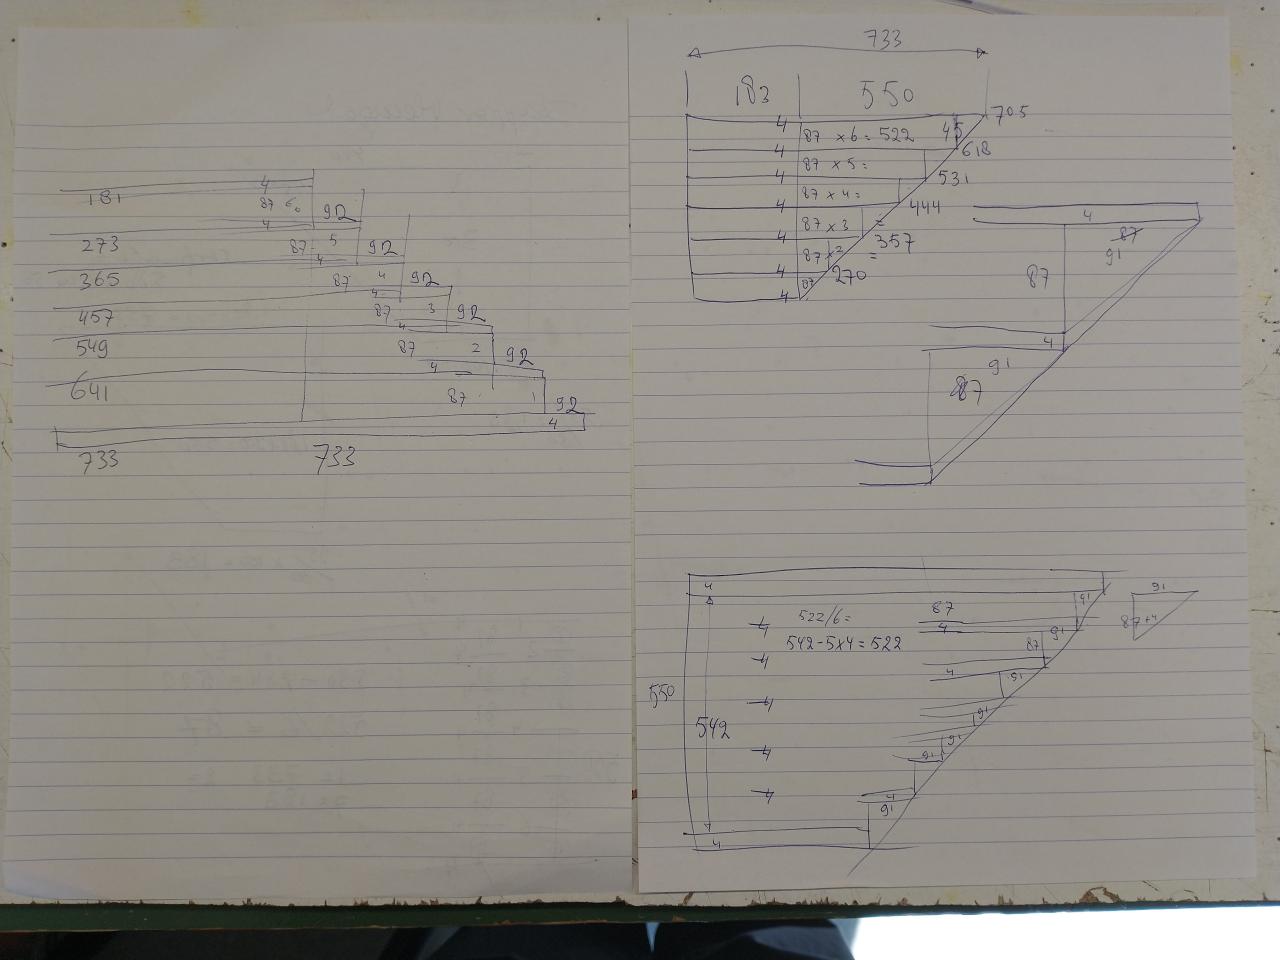 4
181
87 6
92
4
273
87 5
92
4
365
87 4
92
4
457
87 3
92
4
549
87 2
92
4
641
87 1
92
4
733
733
733
183
550
4
705
87 × 6 = 522
45
4
618
87 × 5 =
4
531
87 × 4 =
4
444
87 × 3 =
4
357
87 × 2 =
4
270
87
4
4
87
91
87
4
91
87
4
91
91
87+4
522/6=
87
4
4
91
542-5×4=522
87
4
4
91
550
4
91
542
91
4
91
4
91
4
91
4